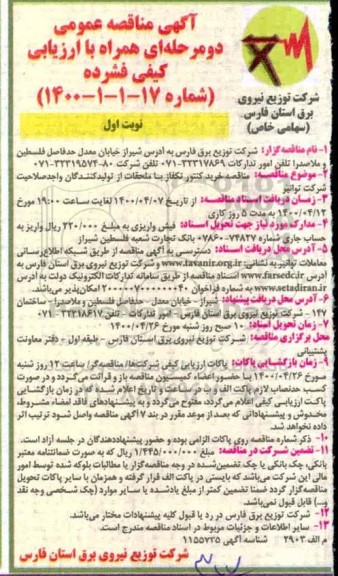 آگهی مناقصه عمومی
دومرحله‌ای همراه با ارزیابی
کیفی فشرده
(شماره ۱۷-۱-۱-۱۴۰۰)
نوبت اول
شرکت توزیع نیروی
برق استان فارس
(سهامی خاص)
۱- نام مناقصه‌گزار: شرکت توزیع برق فارس به آدرس شیراز خیابان معدل حدفاصل فلسطین
و ملاصدرا تلفن امور تدارکات ۳۲۳۱۷۸۶۹-۰۷۱ تلفن شرکت ۸۰-۳۲۳۱۹۵۷۴-۰۷۱
۲- موضوع مناقصه: مناقصه خرید کنتور تکفاز بـا ملحقات از تولیدکننـدگان واجدصلاحیت
شرکت توانیر
۳- زمـان دریافت اسناد مناقصه: از تاریخ ۱۴۰۰/۰۴/۰۷ لغایت ساعت ۱۹:۰۰ مورخ
۱۴۰۰/۰۴/۱۲ به مدت ۵ روز کاری
۴- مدارک مورد نیاز جهت تحویل اسناد: فیش واریزی به مبلغ ۳۲۰/۰۰۰ ریال واریز به
حساب جاری شماره ۰۷۸۶۰۰۷۴۸۲۷ بانک تجارت شعبه فلسطین شیراز
۵- آدرس محل دریافت اسناد: دسترسی به آگهی مناقصه از طریق شبکه اطلاع‌رسانی
معاملات توانیر به نشانی: www.tavanir.org.ir و شرکت توزیع نیروی برق استان فارس به
آدرس www.farsedc.ir اسناد مناقصه از طریق سامانه تدارکات الکترونیک دولت به آدرس
www.setadiran.ir به شماره فراخوان امکان‌پذیر می‌باشد.
۶- آدرس محل دریافت پیشنهاد: شیراز - خیابان معدل - حدفاصل فلسطین و ملاصدرا - ساختمان
۱۴۷ - شرکت توزیع نیروی برق استان فارس - امور تدارکات - تلفن ۳۲۳۱۸۶۱۷-۰۷۱
۷- زمان تحویل اسناد: ۱۰ صبح روز شنبه مورخ ۱۴۰۰/۰۴/۲۶
محل برگزاری مناقصه: شرکت توزیع نیروی برق استان فارس - طبقه اول - دفتر معاونت
پشتیبانی
۸- زمان بازگشایی پاکات: پاکات ارزیابی کیفی شرکت‌ها/ مناقصه‌گر/ ساعت ۱۲ روز شنبه
مورخ ۱۴۰۰/۰۴/۲۶ با حضور اعضاء کمیسیون مناقصه باز و قرائت می‌گردد و در صورت
کسب حدنصاب لازم پاکت الف و ب در ساعت و تاریخ اعلام شده که در زمان بازگشایی
پاکت ارزیابی کیفی اعلام می‌گردد، مفتوح می‌گردد و به پیشنهادهای فاقد امضاء، مشروط،
مخدوش و پیشنهاداتی که بعد از موعد مقرر در بند ۷ آگهی مناقصه واصل شود ترتیب اثر
داده نخواهد شد.
۱۰- ذکر شماره مناقصه روی پاکات الزامی بوده و حضور پیشنهاددهندگان در جلسه آزاد است.
۱۱- تضمین شرکت در مناقصه: مبلغ ۱/۴۴۵/۰۰۰/۰۰۰ ریال می‌باشد که به صورت ضمانتنامه معتبر
بانکی، چک بانکی یا چک تضمین‌شده در وجه مناقصه‌گزار یا مطالبات بلوکه شده توسط امور
مالی این شرکت می‌باشد که بایستی در پاکت الف قرار گرفته و همزمان با سایر پاکات تحویل
مناقصه‌گزار گردد ضمنا تضمین کمتر از مبلغ یادشده یا سایر موارد (چک شخصی وجه نقد
و...) قابل قبول نمی‌باشد.
۱۲- شرکت توزیع برق فارس در رد یا قبول کلیه پیشنهادات مختار می‌باشد.
۱۳- سایر اطلاعات و جزئیات مربوط در اسناد مناقصه مندرج است.
م الف ۲۹۰۳ شناسه آگهی ۱۱۵۵۷۲۳۵
شرکت توزیع نیروی برق استان فارس